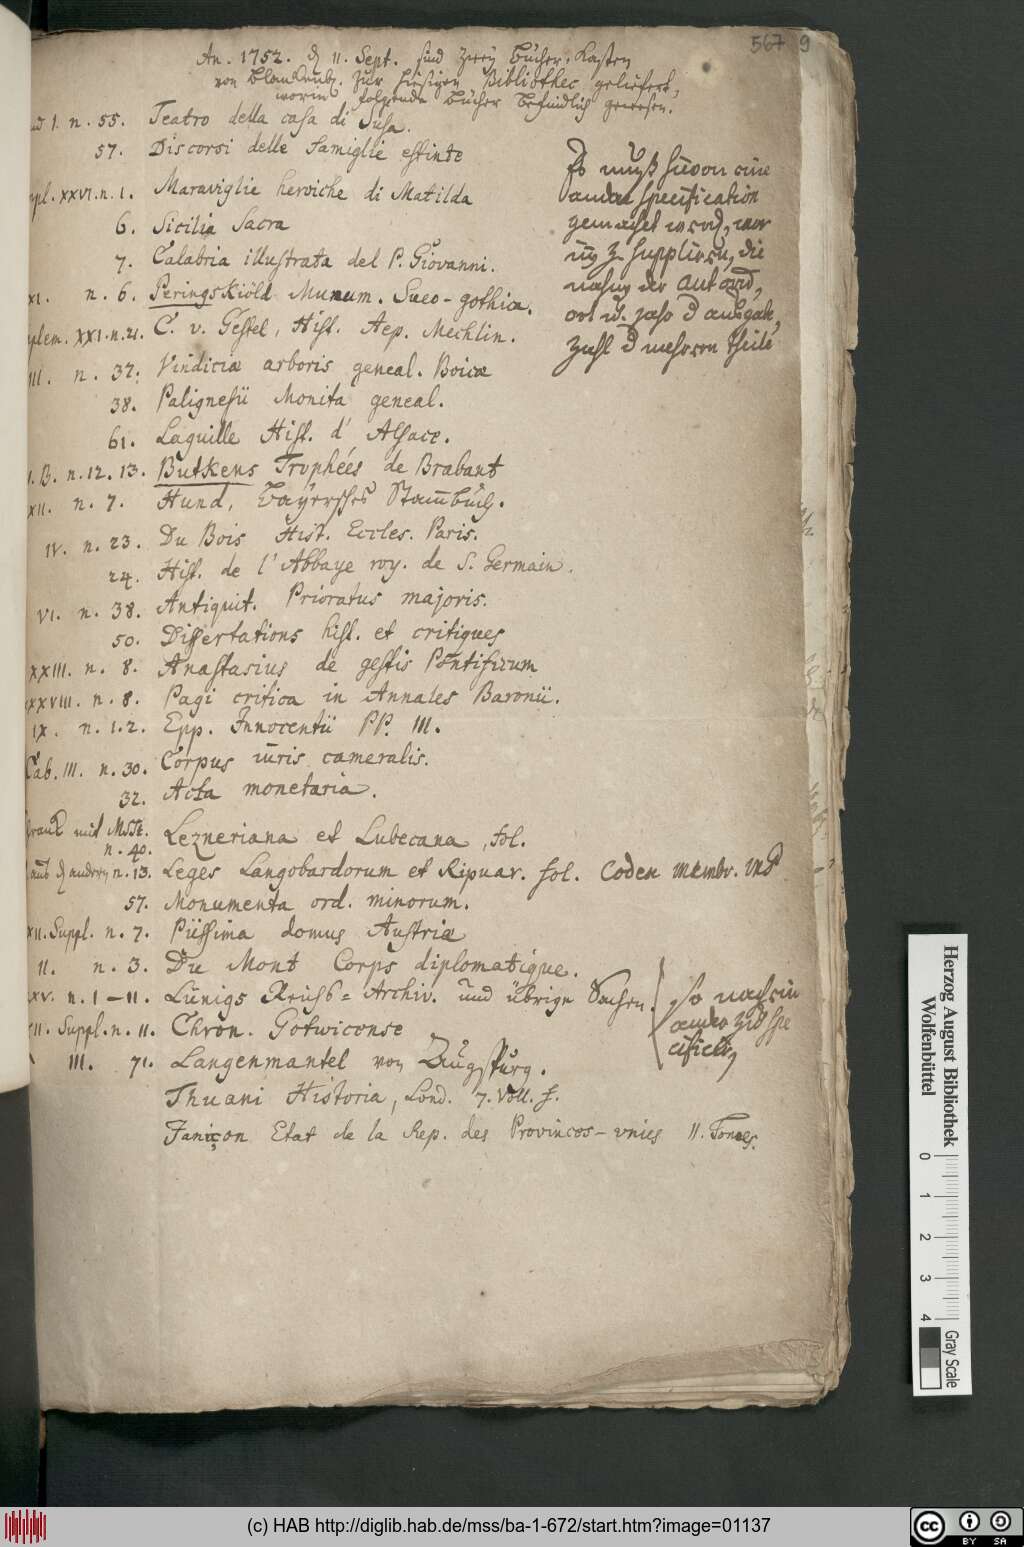 567 9
An. 1752. d 11. Sept. sind zweÿ Bücher-Kasten
von Blankenb. zur hiesigen Bibliothec geliefert,
worin folgende Bücher befindlich gewesen.
1. n. 55. Teatro della casa di Susa.
57. Discorsi delle famiglie estinte
ppl. XXVI. n. 1. Maraviglie heroiche di Matilda
6. Sicilia Sacra
7. Calabria illustrata del P. Giovanni.
XI. n. 6. Peringskiöld Monum. Sueo-gothica.
plem. XXI. n. 21. C. v. Gestel, Hist. Aep. Mechlin.
III. n. 37. Vindiciæ arboris geneal. Boicæ
38. Palignesii Monita geneal.
61. Laguille Hist. d'Alsace.
1. B. n. 12. 13. Butkens Trophées de Brabant
XII. n. 7. Hund, Bayersches Stammbuch.
IV. n. 23. Du Bois Hist. Eccles. Paris.
24. Hist. de l'Abbaye roy. de S. Germain.
VI. n. 38. Antiquit. Prioratus majoris.
50. Dissertations hist. et critiques
XXIII. n. 8. Anastasius de gestis Pontificum
XXVIII. n. 8. Pagi critica in Annales Baronii.
IX. n. 1. 2. Epp. Innocentii PP. III.
Cab. III. n. 30. Corpus iuris cameralis.
32. Acta monetaria.
mit MSSt.
n. 40. Lezneriana et Lubecana, fol.
n. 13. Leges Langobardorum et Ripuar. fol. Codex membr.
57. Monumenta ord. minorum.
XII. Suppl. n. 7. Piissima domus Austriæ
II. n. 3. Du Mont Corps diplomatique.
XXV. n. 1-11. Lünigs Reichs-Archiv. und übrige Sachen.
II. Suppl. n. 11. Chron. Gotwicense
III. 71. Langenmantel von Augspurg.
Thuani Historia, Lond. 7. Voll. f.
Janiçon Etat de la Rep. des Provinces-vnies II. Tomes.
Es muß hievon eine
andere specification
gemacht werden, wor
in zu suppliren, die
nahmen der autorum,
ort u. jahr d ausgabe,
zahl d mehreren theile
so noch ein
zu spe
cificiren
Herzog August Bibliothek
Wolfenbüttel
0 1 2 3 4
Gray Scale
(c) HAB http://diglib.hab.de/mss/ba-1-672/start.htm?image=01137
cc BY SA